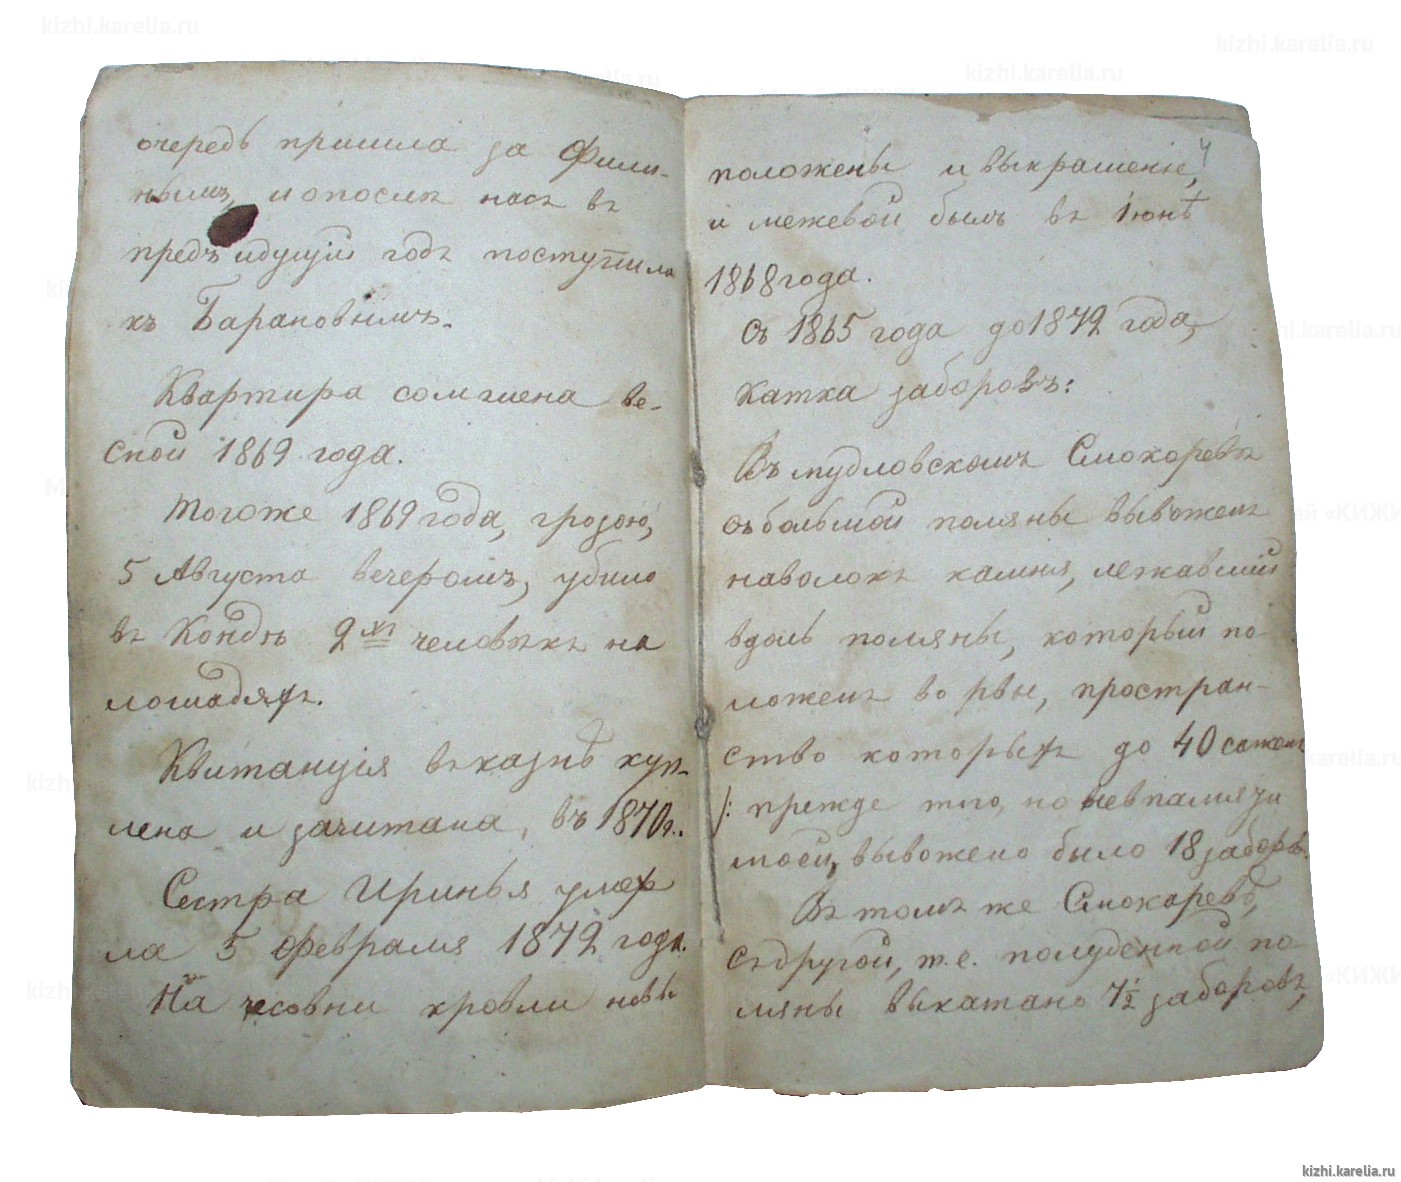 очередь пришла за Фили-
нымъ, и опосля насъ въ
предъидущiй годъ поступила
къ Барановымъ.
Квартира сомшена ве-
сной 1869 года.
Тогоже 1869 года, грозою,
5 Августа вечеромъ, убило
въ Кондѣ 2хъ человѣкъ на
лошадяхъ.
Квитанцiя въ казнѣ куп-
лена и зачитана, въ 1870 г.
Сестра Иринья умер
ла 5 февраля 1872 года.
На часовни кровли новы
положены и выкрашенiе,
и межевой былъ въ Iюнѣ
1868 года.
Съ 1865 года до 1872 года,
Катка заборовъ:
Въ мудловскомъ Смокоревѣ
съ большой поляны вывоженъ
наволокъ камня, лежавшiй
вдоль поляны, который по-
ложенъ во рвы, простран-
ство которыхъ до 40 сажень
/: прежде того, но не в памяти
моей, вывожено было 18 заборъ.
Въ томъ же Смокаревѣ,
съ другой, т.е. полуденной по
ляны выкатано 7½ заборовъ,
kizhi.karelia.ru